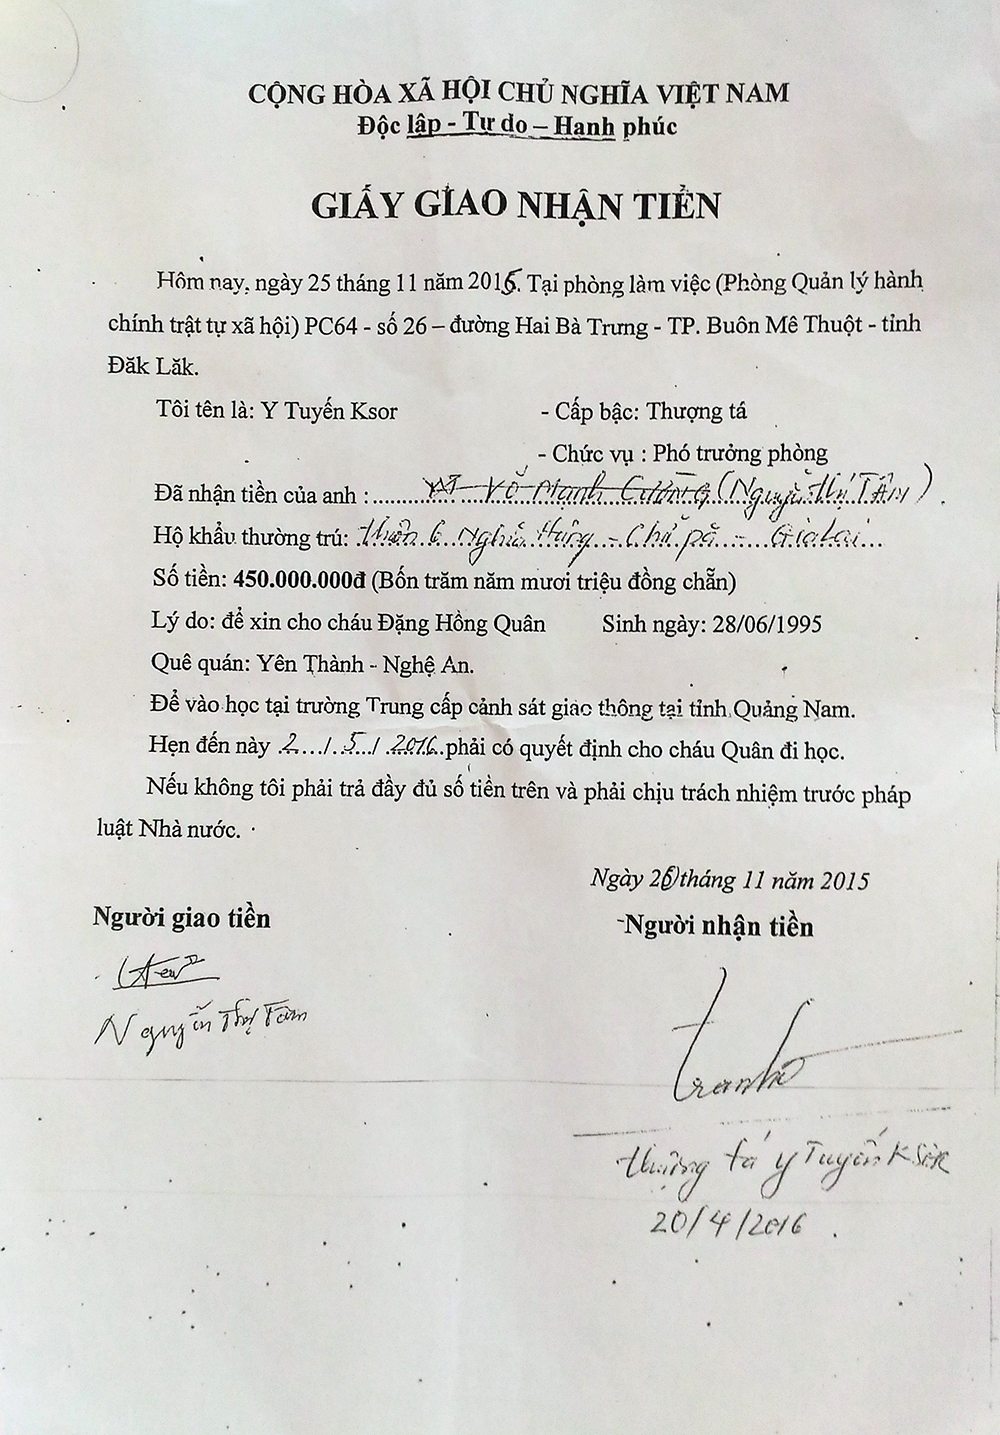 CỘNG HÒA XÃ HỘI CHỦ NGHĨA VIỆT NAM
Độc lập - Tự do – Hạnh phúc
GIẤY GIAO NHẬN TIỀN
Hôm nay, ngày 25 tháng 11 năm 2015. Tại phòng làm việc (Phòng Quản lý hành
chính trật tự xã hội) PC64 - số 26 – đường Hai Bà Trưng - TP. Buôn Mê Thuột - tỉnh
Đăk Lăk.
Tôi tên là: Y Tuyến Ksor - Cấp bậc: Thượng tá
- Chức vụ : Phó trưởng phòng
Đã nhận tiền của anh : Võ Mạnh Cường (Nguyễn Thị TÂM).
Hộ khẩu thường trú: thôn 6 Nghĩa Hưng - Chư pă - Gia Lai
Số tiền: 450.000.000đ (Bốn trăm năm mươi triệu đồng chẵn)
Lý do: để xin cho cháu Đặng Hồng Quân Sinh ngày: 28/06/1995
Quê quán: Yên Thành - Nghệ An.
Để vào học tại trường Trung cấp cảnh sát giao thông tại tỉnh Quảng Nam.
Hẹn đến này 2 / 5 / 2016 phải có quyết định cho cháu Quân đi học.
Nếu không tôi phải trả đầy đủ số tiền trên và phải chịu trách nhiệm trước pháp
luật Nhà nước.
Ngày 26 tháng 11 năm 2015
Người giao tiền
Người nhận tiền
Nguyễn Thị Tâm
thượng tá y Tuyến KSOR
20/4/2016